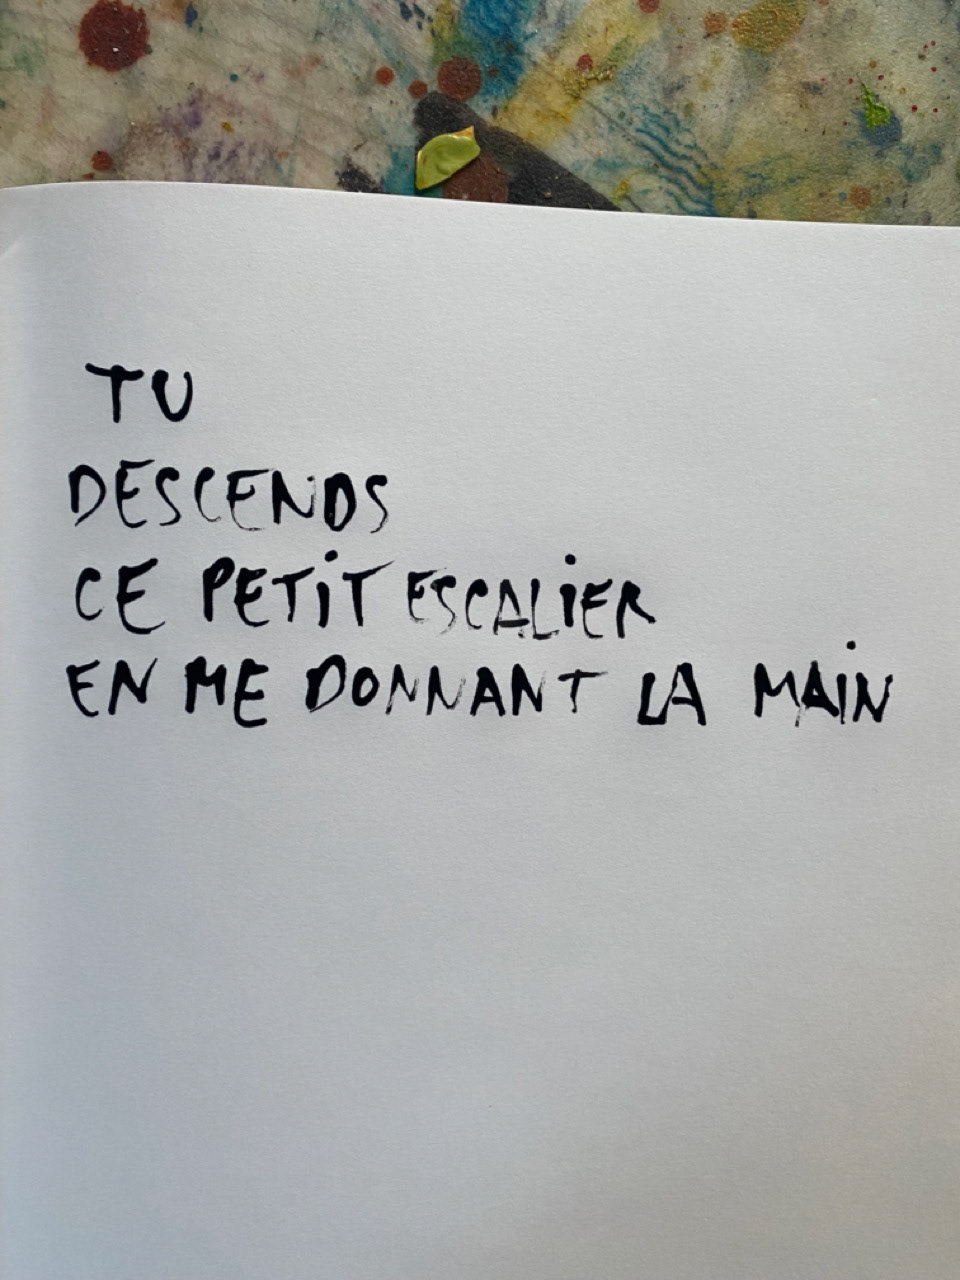 TU
DESCENDS
CE PETiT ESCALiER
EN ME DONNANT LA MAiN